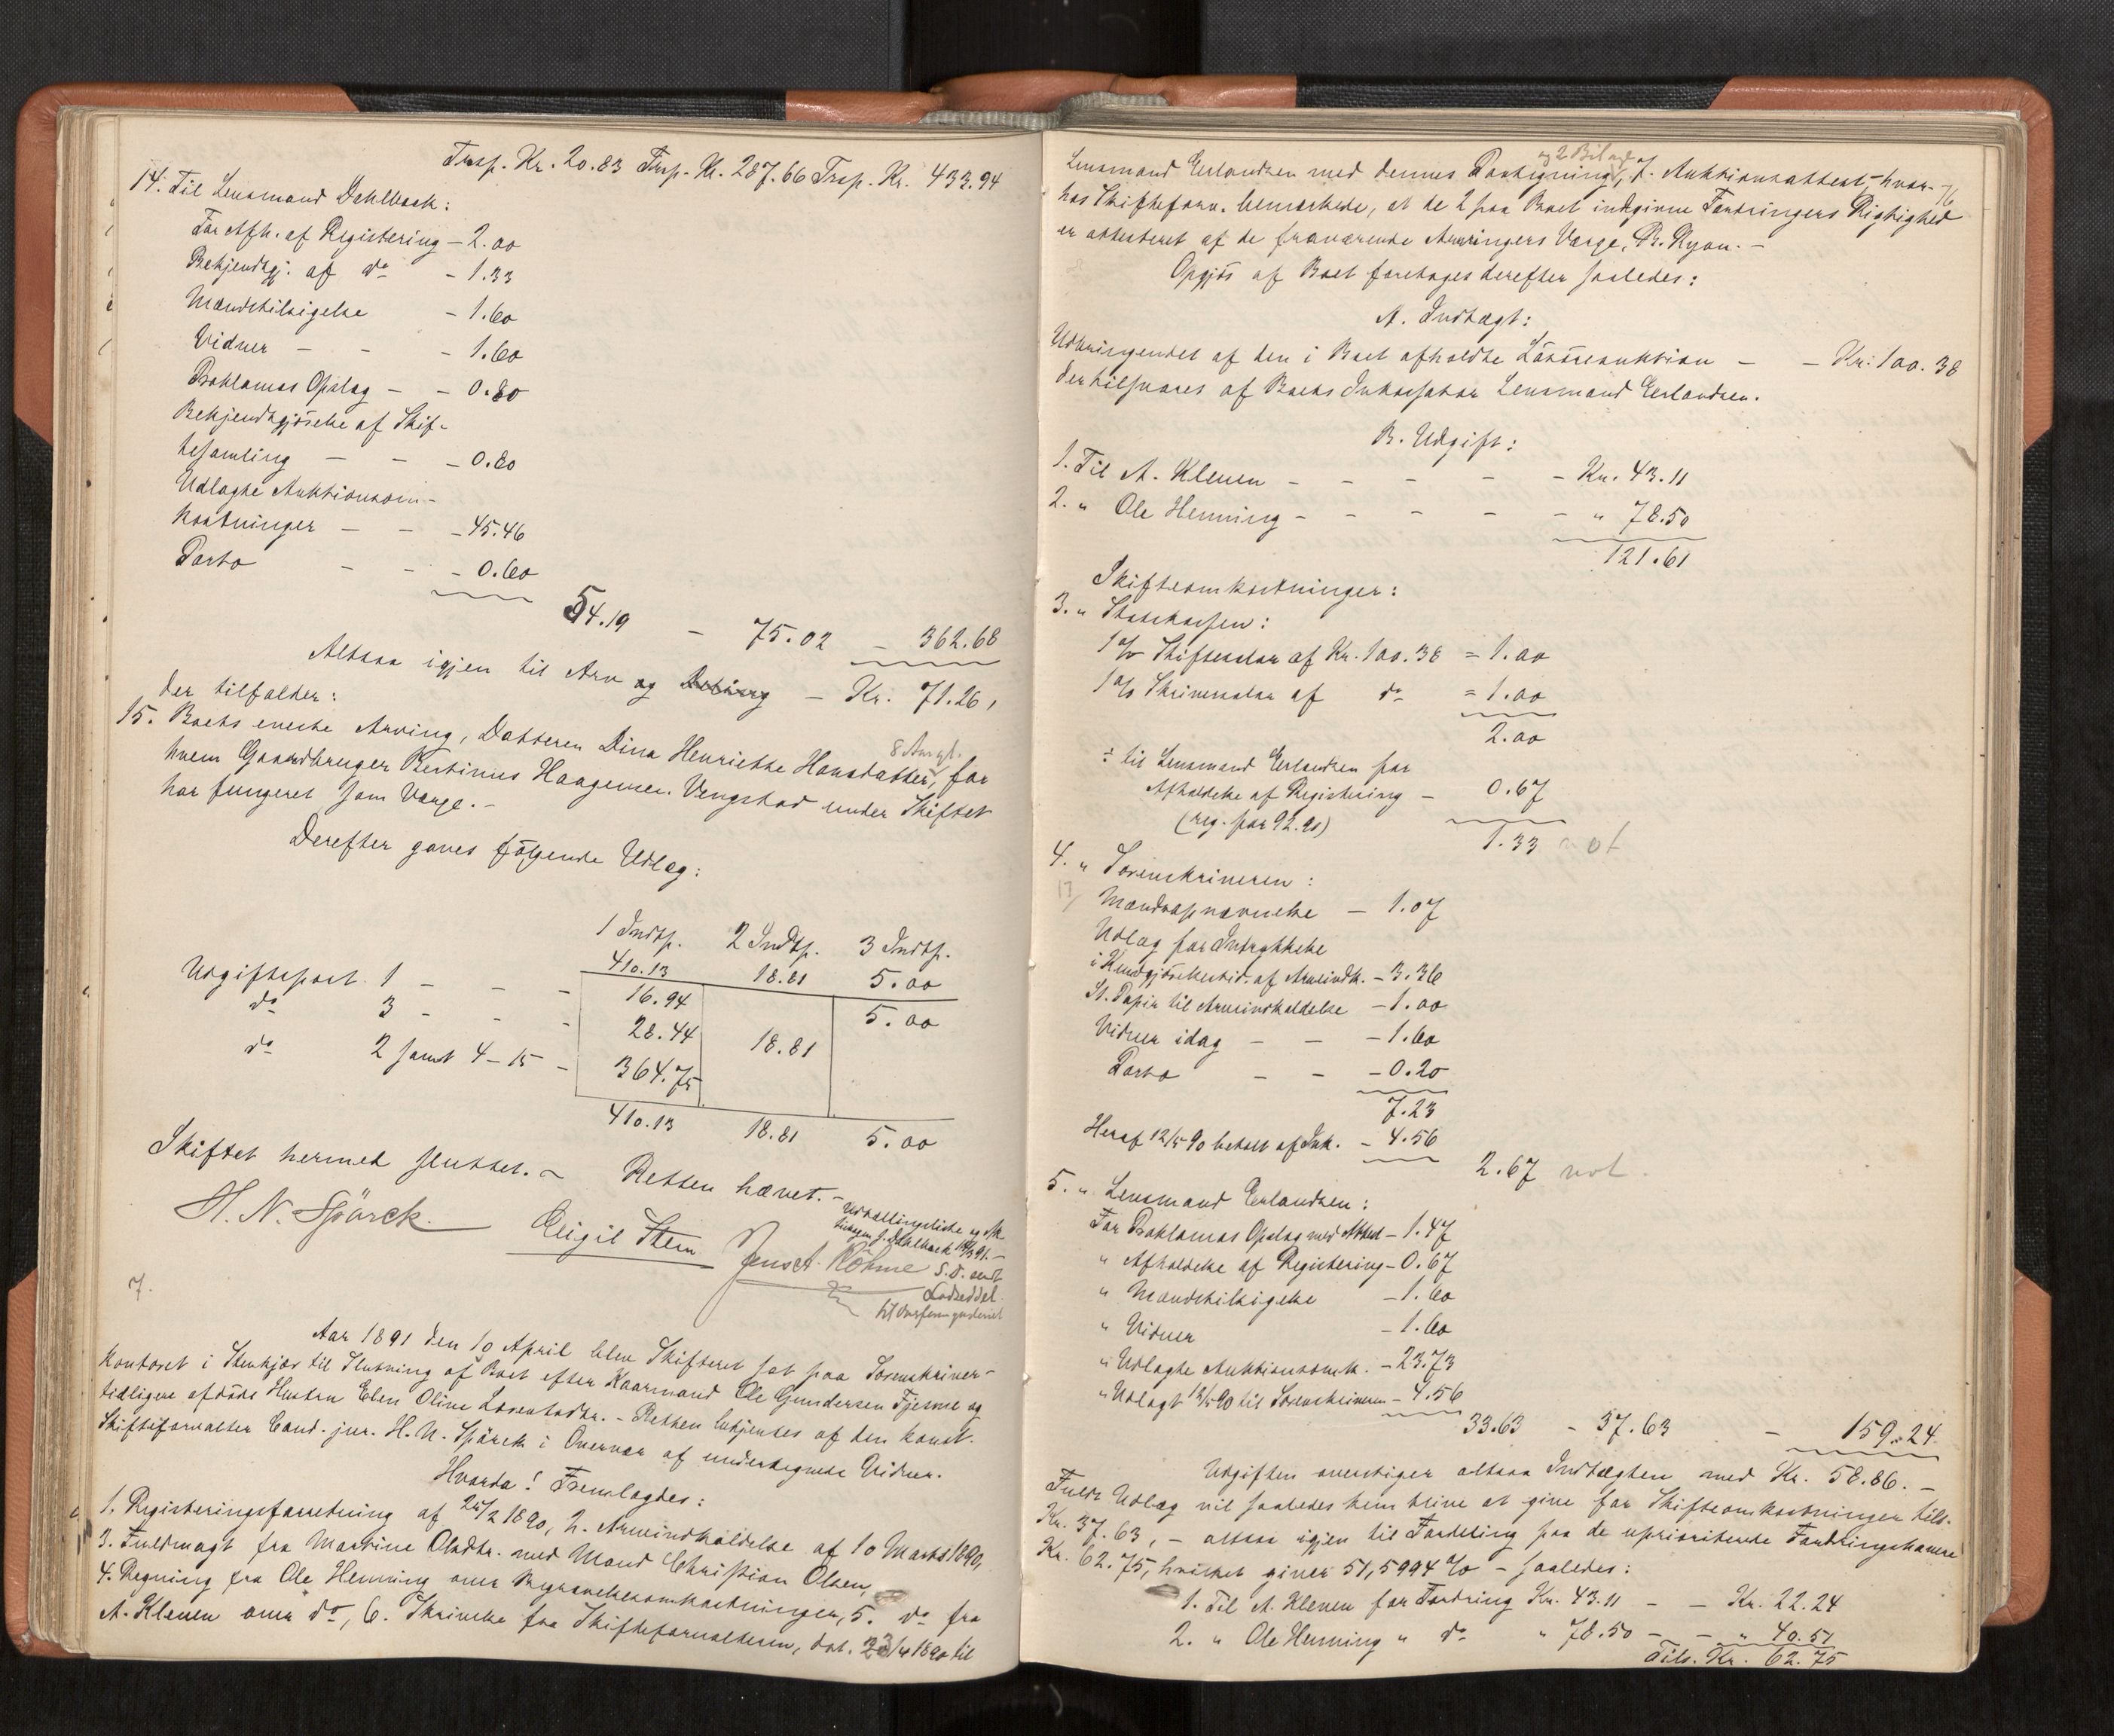 Trsp. Kr. 20.83 Trsp. Kr. 287.66 Trsp. Kr. 433.94
14. Til Lensmand Dahlback:
For Afh. af Registering - 2.00
Bekjendtgj. af do - 1.33
Mændstilsigelse - 1.60
Vidner - - - 1.60
Proklamas Opslag - - 0.80
Bekjendtgjörelse af Skif-
tesamling - - - 0.80
Udlagte Auktionsom-
kostninger - - - 45.46
Porto - - - 0.60
54.19 - 75.02 - 362.68
Altsaa igjen til Arv og - Kr. 71.26,
der tilfalder:
15. Boets eneste Arving, Datteren Dina Henriette Hansdatter, 8 Aar gl. for
hvem Gaardbruger Bertinus Haagensen Vengstad under Skiftet
har fungeret som Værge. -
Derefter gaves fölgende Udlæg:
1 Indtp. 2 Indtp. 3 Indtp.
410.13 18.81 5.00
Udgiftspost 1 - - - 16.94 5.00
do 3 - - - 28.44 18.81
do 2 samt 4-15 - 364.75
410.13 18.81 5.00
Skiftet hermed sluttet. - Retten hævet. -
H. N. Spörck. Eigil Stem Jens A. Röhme
Udtallingsliste og
Dahlback
S. D. sendt
Lodseddel
til Overformynderiet
7.
Aar 1891 den 10 April blev Skifteret sat paa Sorenskriver-
kontoret i Stenkjær til Slutning af Boet efter Kaarmand Ole Gundersen Fjesme og
tidligere afdöde Hustru Elen Oline Larsdatter. - Retten betjentes af den konst.
Skifteforvalter Cand. jur. H. N. Spörck i Overvær af undertegnede Vidner.
Hvorda! Fremlagdes:
1. Registeringsforretning af 25/2 1890, 2. Arveindkaldelse af 10 Marts 1890,
3. Fuldmagt fra Martine Olsdtr. med Mand Christian Olsen,
4. Regning fra Ole Henning over Begravelsesomkostninger, 5. do fra
A. Kleven over do, 6. Skrivelse fra Skifteforvalteren, dat. 23/4 1890 til
Lensmand Erlandsen med dennes Paategning og 2 Bilag, 7. Auktionsattest, - hvor-
hos Skifteforv. bemærkede, at de 2 paa Boet indgivne Fordringers Rigtighed
er attesteret af de fraværende Arvingers Værge, B. Ryan. -
Opgjör af Boet foretoges derefter saaledes:
A. Indtægt:
Udbringendet af den i Boet afholdte Lösöreauktion - - Kr. 100.38
der tilsvares af Boets Inkassator Lensmand Erlandsen.
B. Udgift:
1. Til A. Kleven - - - - - Kr. 43.11
2. " Ole Henning - - - - - " 78.50
121.61
Skifteomkostninger:
3. " Statskassen:
1 % Skiftesalær af Kr. 100.38 = 1.00
1 % Skriversalær af do = 1.00
2.00
÷ til Lensmand Erlandsen for
Afholdelse af Registering - 0.67
(reg. for 92.90)
1.33
4. " Sorenskriveren:
Mændsopnævnelse - 1.07
Udlæg for Indrykkelse
i Kundgjörelsestid. af Arveindk. - 3.36
St. Papir til Arveindkaldelse - 1.00
Vidner idag - - - 1.60
Porto - - - 0.20
7.23
Heraf 12/5 90 betalt af Ink. - 4.56
2.67
5. " Lensmand Erlandsen:
For Proklamas Opslag med Attest - 1.47
" Afholdelse af Registering - 0.67
" Mændstilsigelse - 1.60
" Vidner - 1.60
" Udlagte Auktionsomk. - 23.73
" Udlagt 12/5 90 til Sorenskriveren - 4.56
33.63 - 37.63 - 159.24
Udgiften overstiger altsaa Indtægten med Kr. 58.86. -
Fuldt Udlæg vil saaledes kun blive at give for Skifteomkostninger tils.
Kr. 37.63, - altsaa igjen til Fordeling paa de uprioriterede Fordringshavere
Kr. 62.75, hvilket giver 51,5994 % - saaledes:
1. Til A. Kleven for Fordring Kr. 43.11 - - Kr. 22.24
2. " Ole Henning " do " 78.50 - - " 40.51
Tils. Kr. 62.75